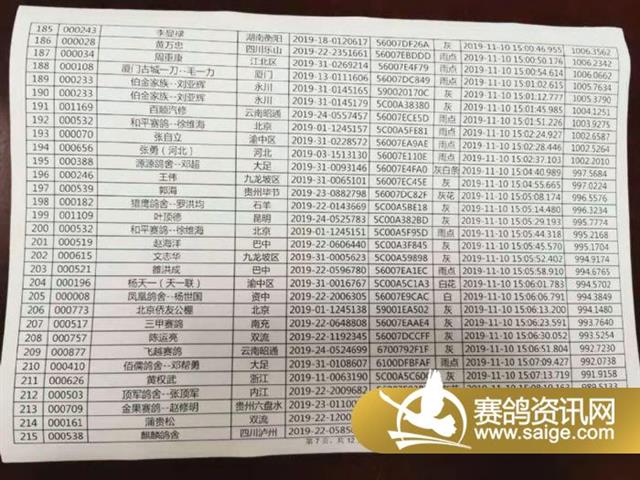 185 000243 李显禄 湖南衡阳 2019-18-0120617 56007DF26A 灰 2019-11-10 15:00:46.955 1006.3562
186 000028 黄万忠 四川乐山 2019-22-2351661 56007EBDDD 雨点 2019-11-10 15:00:50.176 1006.2342
187 000034 周重康 江北区 2019-31-0269214 56007E4F79 雨点 2019-11-10 15:00:54.614 1006.0662
188 000108 厦门古城一刀--毛一力 厦门 2019-13-0111606 56007DC849 雨点 2019-11-10 15:01:02.615 1005.7634
189 000233 伯金家族--刘亚辉 永川 2019-31-0145167 590020170C 灰 2019-11-10 15:01:12.777 1005.3790
190 000233 伯金家族--刘亚辉 永川 2019-31-0145179 5C00A38380 灰 2019-11-10 15:01:45.985 1004.1251
191 001169 百顺汽修 云南昭通 2019-24-0557457 56007ECE5D 雨点 2019-11-10 15:02:24.927
192 000532 和平赛鸽--徐维海 北京 2019-01-1245157 5C00A5FE81 雨点 2019-11-10 15:02:28.446 1002.5264
193 000070 张自立 渝中区 2019-31-0228271 56007EA9AE 雨点
194 000656 张勇（河北） 河北 2019-03-1513130 56007E110E 雨点 2019-11-10 15:02:37.103 1002.2010
195 000388 源源鸽舍--邓超 大足 2019-31-0093146 56007E4FA0 灰白条 2019-11-10 15:04:40.989 997.5684
196 000246 王伟 九龙坡区 2019-31-0065101 56007EC45E 灰
197 000537 郭海 贵州毕节 2019-23-0882798 56007DC82F 灰花
198 000182 猎鹰鸽舍--罗洪均 石羊 2019-22-0143669 5C00A5BE18 灰 2019-11-10 15:05:14.480 996.3234
199 001109 叶顶德 昆明 2019-24-0525783 5C00A382BD 灰
200 000532 和平赛鸽--徐维海 北京 2019-01-1245151 5C00A5F95D 雨点
201 000519 赵海洋 巴中 2019-22-0606440 5C00A3F845 灰 2019-11-10 15:05:45.570 995.1704
202 000615 文志华 九龙坡区 2019-31-0005623 5C00A59898 灰 2019-11-10 15:05:52.402 994.9174
203 000521 雒洪成 巴中 2019-22-0596780 56007EA1EC 雨点 2019-11-10 15:05:58.910 994.6765
204 000196 杨天一（天一联） 渝中区 2019-31-0016767 5C00A5C1A3 白花 2019-11-10 15:06:01.782
205 000008 凤凰鸽舍--杨世国 资中 2019-22-2006305 56007E9CAC 白 2019-11-10 15:06:06.791 994.3849
206 000773 北京侨友公棚 北京 2019-01-1241389 59001EA502 灰 2019-11-10 15:06:13.200 994.1480
207 000517 三甲赛鸽 南充 2019-22-0648808 56007EAAE4 灰 2019-11-10 15:06:23.591 993.7640
208 000757 陈运亮 双流 2019-22-1192345 56007DCCFF 灰 2019-11-10 15:06:30.052 993.5254
209 000877 飞越赛鸽 云南昭通 2019-24-0524699 6700792F1F 灰 2019-11-10 15:06:51.804 992.7230
210 000410 佰儒鸽舍--邓帮勇 大足 2019-31-0108561 6100DFBFAF 雨点 2019-11-10 15:07:09.427 992.0738
211 000626 黄权武 浙江 2019-11-0063190 灰 2019-11-10 15:07:13.719 991.9158
212 000503 顶军鸽舍--张顶军 内江 2019-22-2009682
213 000709 金果赛鸽--赵修明 贵州六盘水
214 000161 蒲贵松 双流
215 000538 麒麟鸽舍 四川泸州
第 7 页, 共 12
赛鸽资讯网
www.saige.com